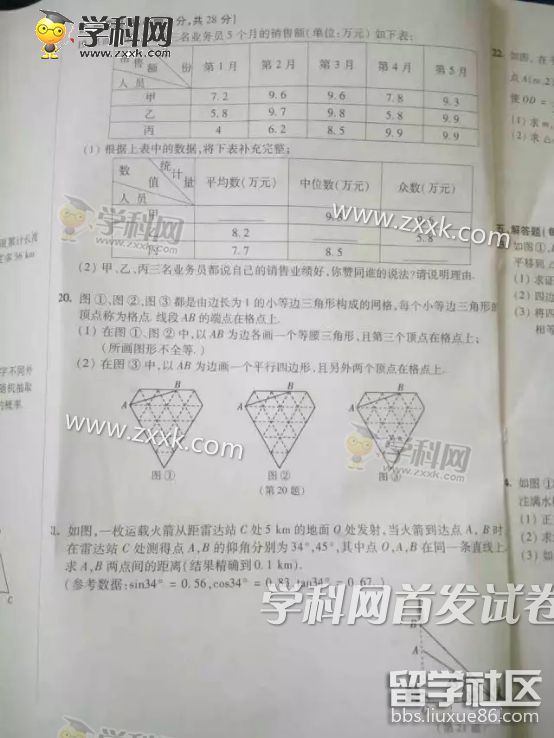 学科网
WWW.ZXXK.COM
分,共28分)
名业务员5个月的销售额(单位:万元)如下表:
售 额 份 第1月 第2月 第3月 第4月 第5月
人员
甲 7.2 9.6 9.6 7.8 9.3
乙 5.8 9.7 9.8 5.8 9.9
丙 4 6.2 8.5 9.9 9.9
(1)根据上表中的数据,将下表补充完整:
数 值 统计量 平均数(万元) 中位数(万元) 众数(万元)
人员
甲
8.2 5.8
7.7 8.5
学科网
www.zxxk.com
(2)甲、乙、丙三名业务员都说自己的销售业绩好,你赞同谁的说法?请说明理由.
20. 图①、图②、图③都是由边长为1的小等边三角形构成的网格,每个小等边三角形的
顶点称为格点. 线段AB的端点在格点上.
(1)在图①、图②中,以AB为边各画一个等腰三角形,且第三个顶点在格点上;
(所画图形不全等.)
(2)在图③中,以AB为边画一个平行四边形,且另外两个顶点在格点上.
A B
A B
A B
www.zxxk.com
学科网
图① 图② 图③
(第20题)
如图,一枚运载火箭从距雷达站C处5 km的地面O处发射,当火箭到达点A,B时,
在雷达站C处测得点A,B的仰角分别为34°,45°,其中点O,A,B在同一条直线上.
求A,B两点间的距离(结果精确到0.1 km).
(参考数据:sin34°=0.56,cos34°=0.83,tan34°=0.67.)
学科网首发试卷
B
A
(第21题)
学科网
留学社区
bbs.liuxue86.com
累计长度
36 km
字不同外
随机抽取
的概率.
C
22. 如图,在平
点A(m,2)
使OD=
(1)求m,
(2)求△
五、解答题(每
如图①,
平移到
(1)求证
(2)
(3)将四
相等
如图①
注满水
(1)正
(2)求
(3)如